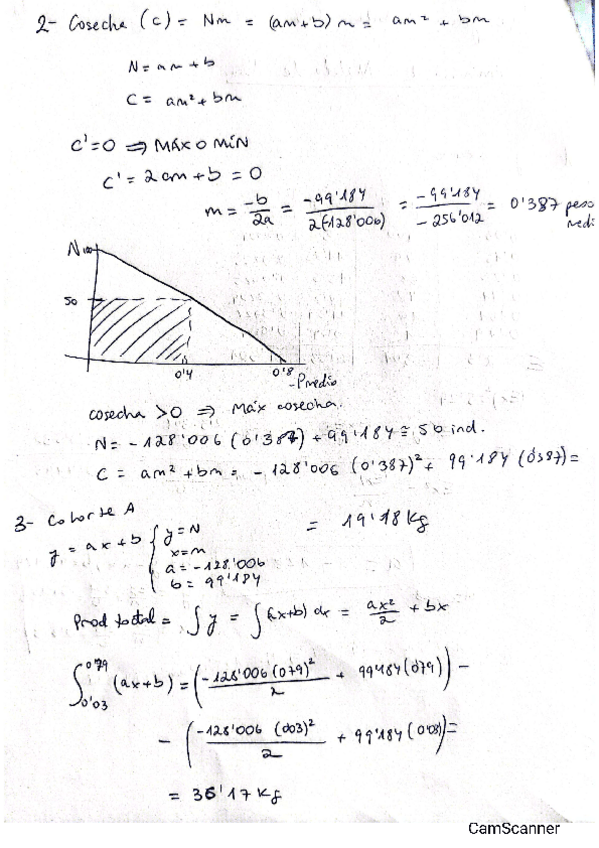 2- Cosecha (c) = Nm = (am+b) m = am² + bm
N = am + b
C = am² + bm
C'=0 ⇒ MÁX O MÍN
C' = 2am + b = 0
m = -b/2a = -99'184/2(-128'006) = -99'184/-256'012 = 0'387 peso
medi
N 100
50
0'4
0'8
Pmedio
cosecha >0 ⇒ Máx cosecha.
N = -128'006 (0'387) + 99'184 ≅ 50 ind.
C = am² + bm = -128'006 (0'387)² + 99'184 (0'387) =
= 19'18 kg
3- Cohorte A
y = ax + b { y = N
x = m
a = -128'006
b = 99'184
Prod total = ∫ y = ∫(ax+b) dx = ax²/2 + bx
∫ 0'79 0'03 (ax+b) = (-128'006 (0'79)²/2 + 99'184 (0'79)) -
- (-128'006 (0'03)²/2 + 99'184 (0'03)) =
= 36'17 kg
CamScanner